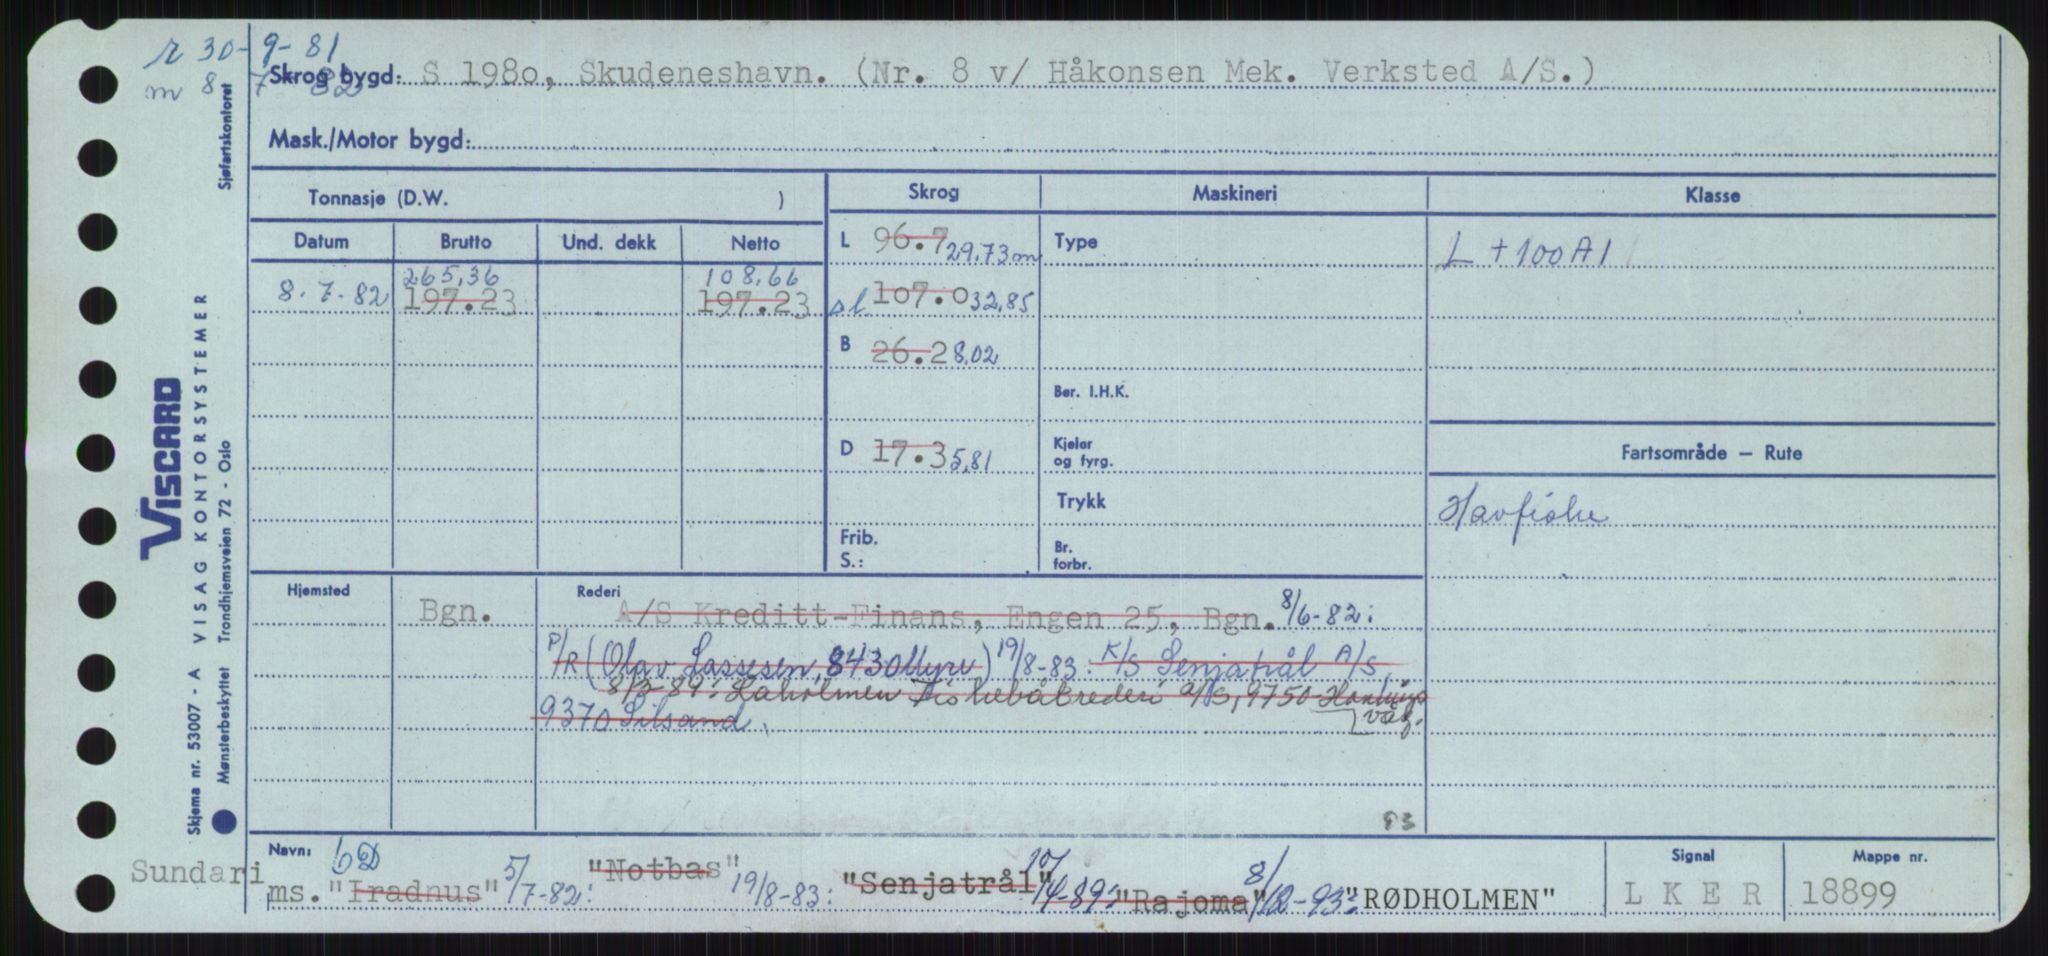 r 30-9-81
m 8 7 82
Skrog bygd: S 1980, Skudeneshavn. (Nr. 8 v/ Håkonsen Mek. Verksted A/S.)
Mask./Motor bygd:
Tonnasje (D.W. )
Skrog Maskineri Klasse
Datum Brutto Und. dekk Netto
L 96.7 29,73 m Type L +100A1
265,36 108,66
8.7-82 197.23 197.23
sl. 107.0 32,85
B 26.2 8,02
Ber. I.H.K.
D 17.3 5,81
Kjeler og fyrg.
Fartsområde – Rute
Trykk
Havfiske
Frib.
S.:
Br. forbr.
Hjemsted Rederi
Bgn. A/S Kreditt-Finans, Engen 25, Bgn. 8/6-82:
P/R (Olav Lassesen, 8430 Myre) 19/8-83: K/S Senjatrål A/S,
89: Fiskebåtrederi a/s, 9750 Honnings
våg.
9370 Silsand
93
Navn: bD
Sundari
ms. "Iradnus" 5/7-82: "Notbas" 19/8-83: "Senjatrål" 10/4-89: "Rajoma" 8/12-93: "RØDHOLMEN"
Signal
LKER
Mappe nr.
18899
Sjøfartskontoret
VISCARD
VISAG KONTORSYSTEMER
Trondhjemsveien 72 - Oslo
Skjema nr. 53007 - A
Mønsterbeskyttet